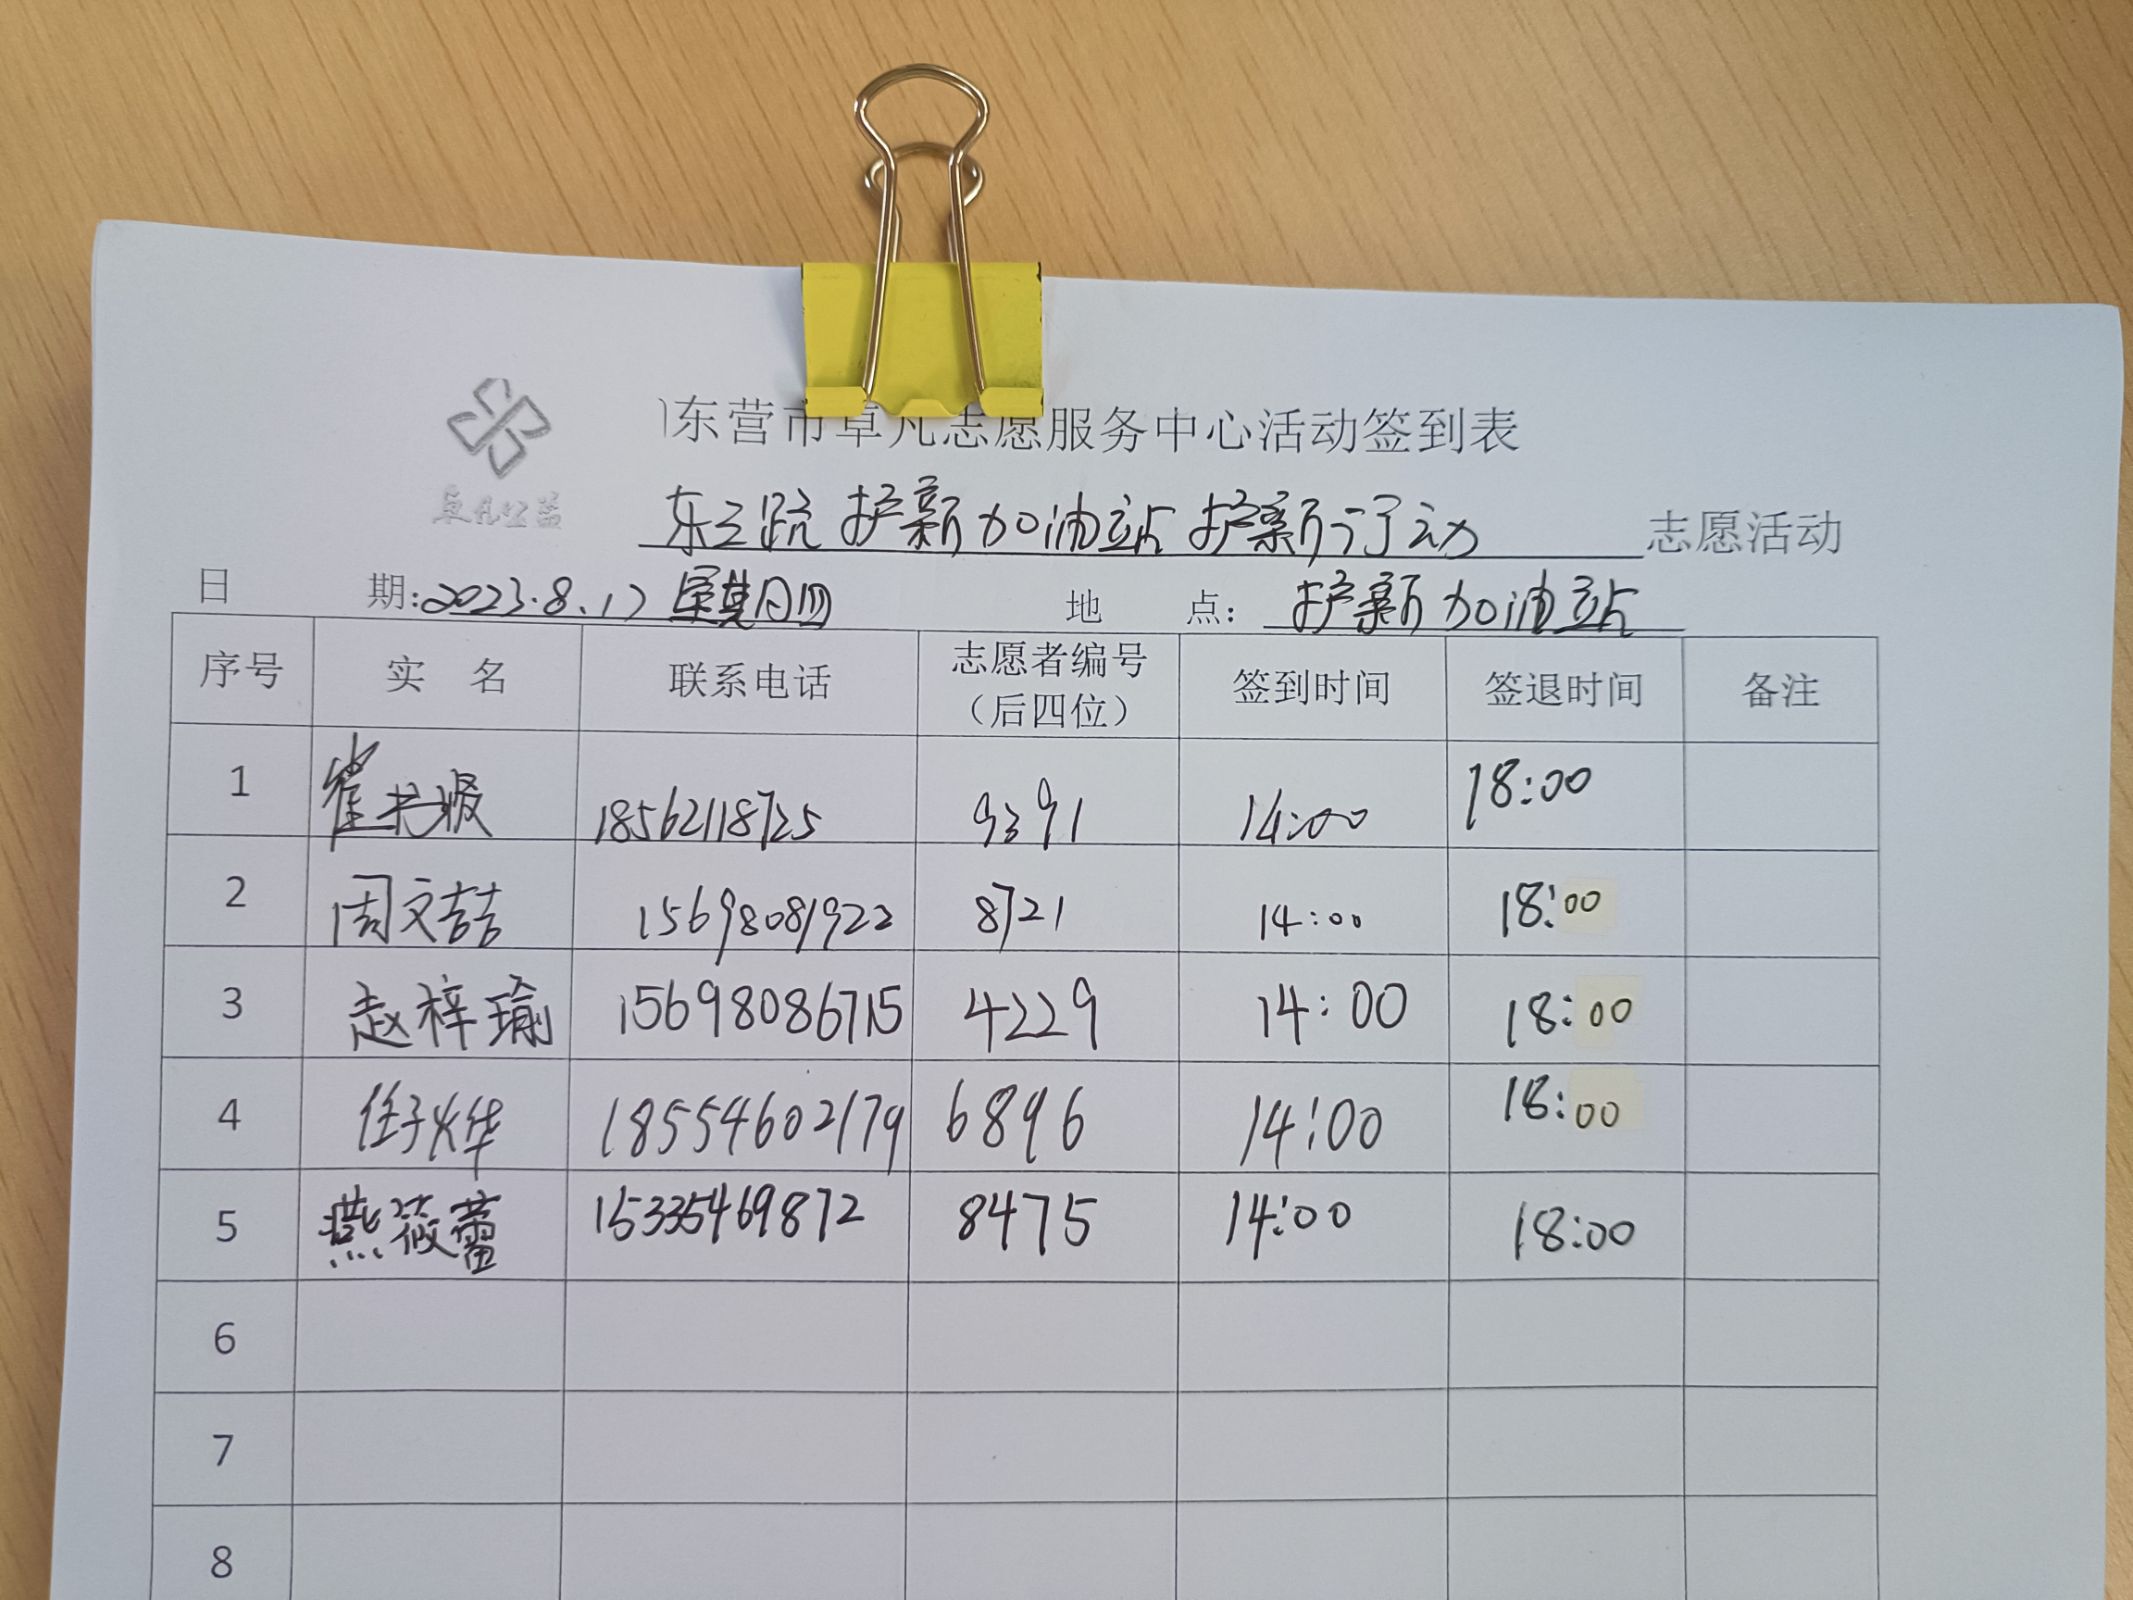 东营市卓凡志愿服务中心活动签到表
卓凡公益
东三路护新加油站护新行动 志愿活动
日 期:2023.8.17 星期四 地 点: 护新加油站
序号 实 名 联系电话 志愿者编号（后四位） 签到时间 签退时间 备注
1 崔 18562118725 9391 14:00 18:00
2 周文喆 15698081922 8721 14:00 18:00
3 赵梓瑜 15698086715 4229 14:00 18:00
4 任子烨 18554602179 6896 14:00 18:00
5 燕筱蕾 15335469872 8475 14:00 18:00
6
7
8